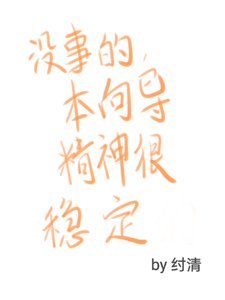 没事的，
本向导
精神很
稳定
by 纣清